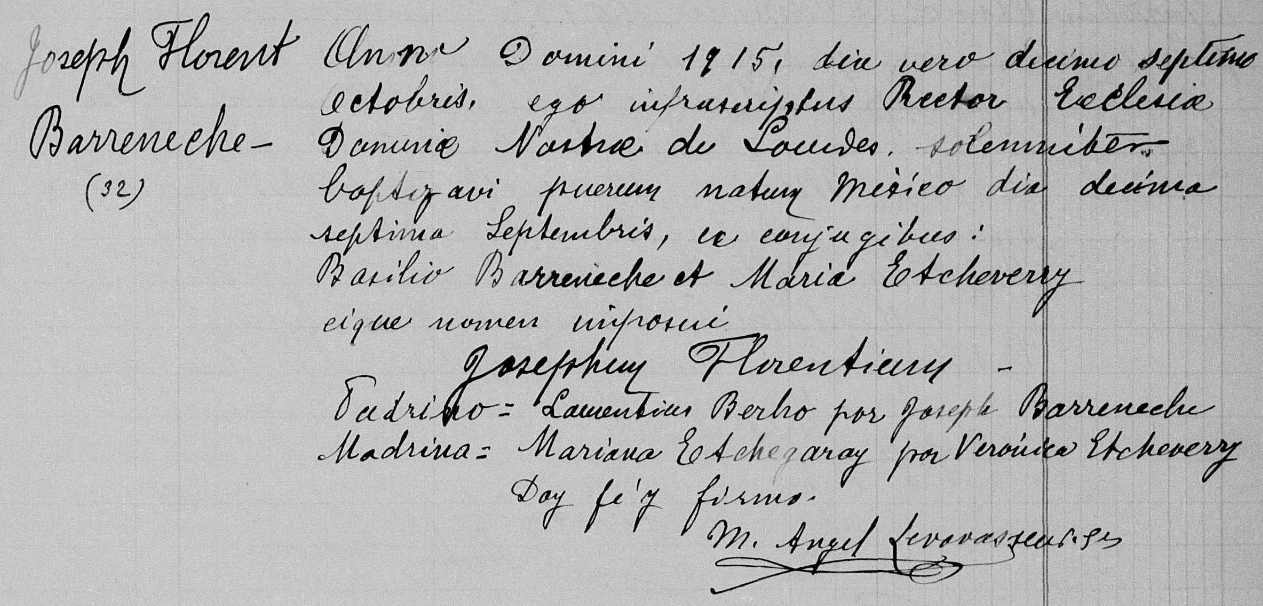 Joseph Florent
Barreneche-
(32)
Anno Domini 1915, die vero decimo septimo
Octobris, ego infrascriptus Rector Ecclesiæ
Dominæ Nostræ de Lourdes, solemniter
baptizavi puerum natum México die decima
septima Septembris, ex conjugibus:
Basilio Barreneche et Maria Etcheverry
eique nomen imposui
Josephum Florentium -
Padrino = Laurentius Berho por Joseph Barreneche
Madrina = Mariana Etchegaray por Verónica Etcheverry
Doy fé y firmo.
M. Angel